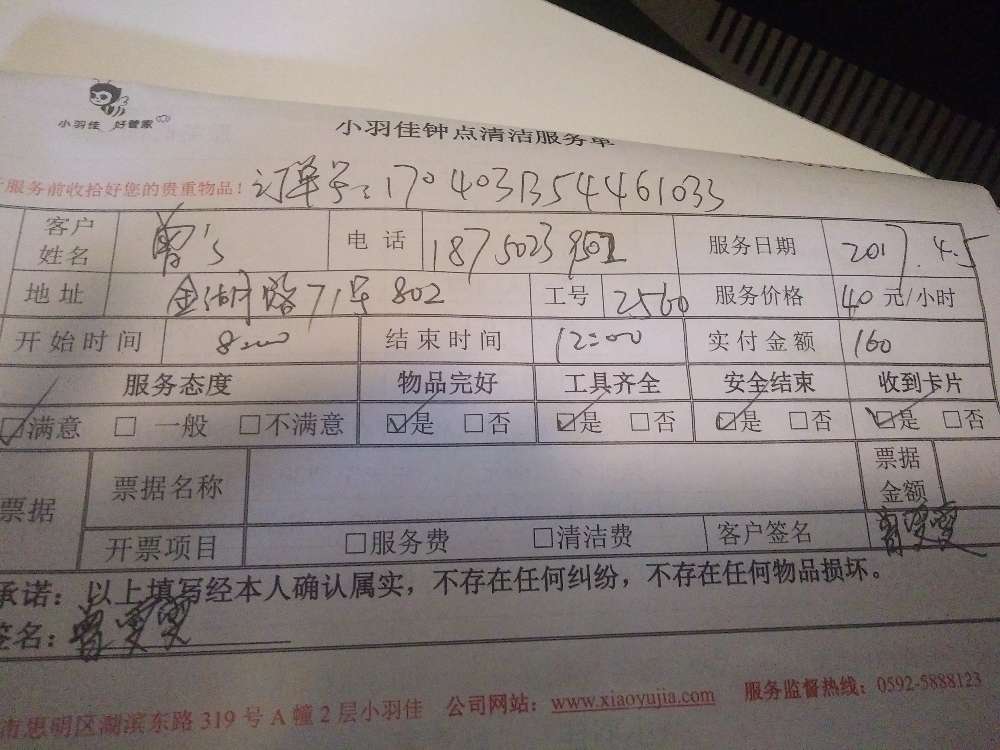 小羽佳 好管家
小羽佳钟点清洁服务单
服务前收拾好您的贵重物品！ 订单号：17040313544461033
客户姓名 曾's 电话 服务日期 2017.4.5
地址 金湖路71号802 工号 2560 服务价格 40 元/小时
开始时间 8:00 结束时间 12:00 实付金额 160
服务态度 物品完好 工具齐全 安全结束 收到卡片
☑满意 □ 一般 □不满意 ☑是 □否 ☑是 □否 ☑是 □否 ☑是 □否
票据 票据名称 票据金额
开票项目 □服务费 □清洁费 客户签名
承诺：以上填写经本人确认属实，不存在任何纠纷，不存在任何物品损坏。
签名：
市思明区湖滨东路319号A幢2层小羽佳 公司网站：www.xiaoyujia.com 服务监督热线：0592-5888123